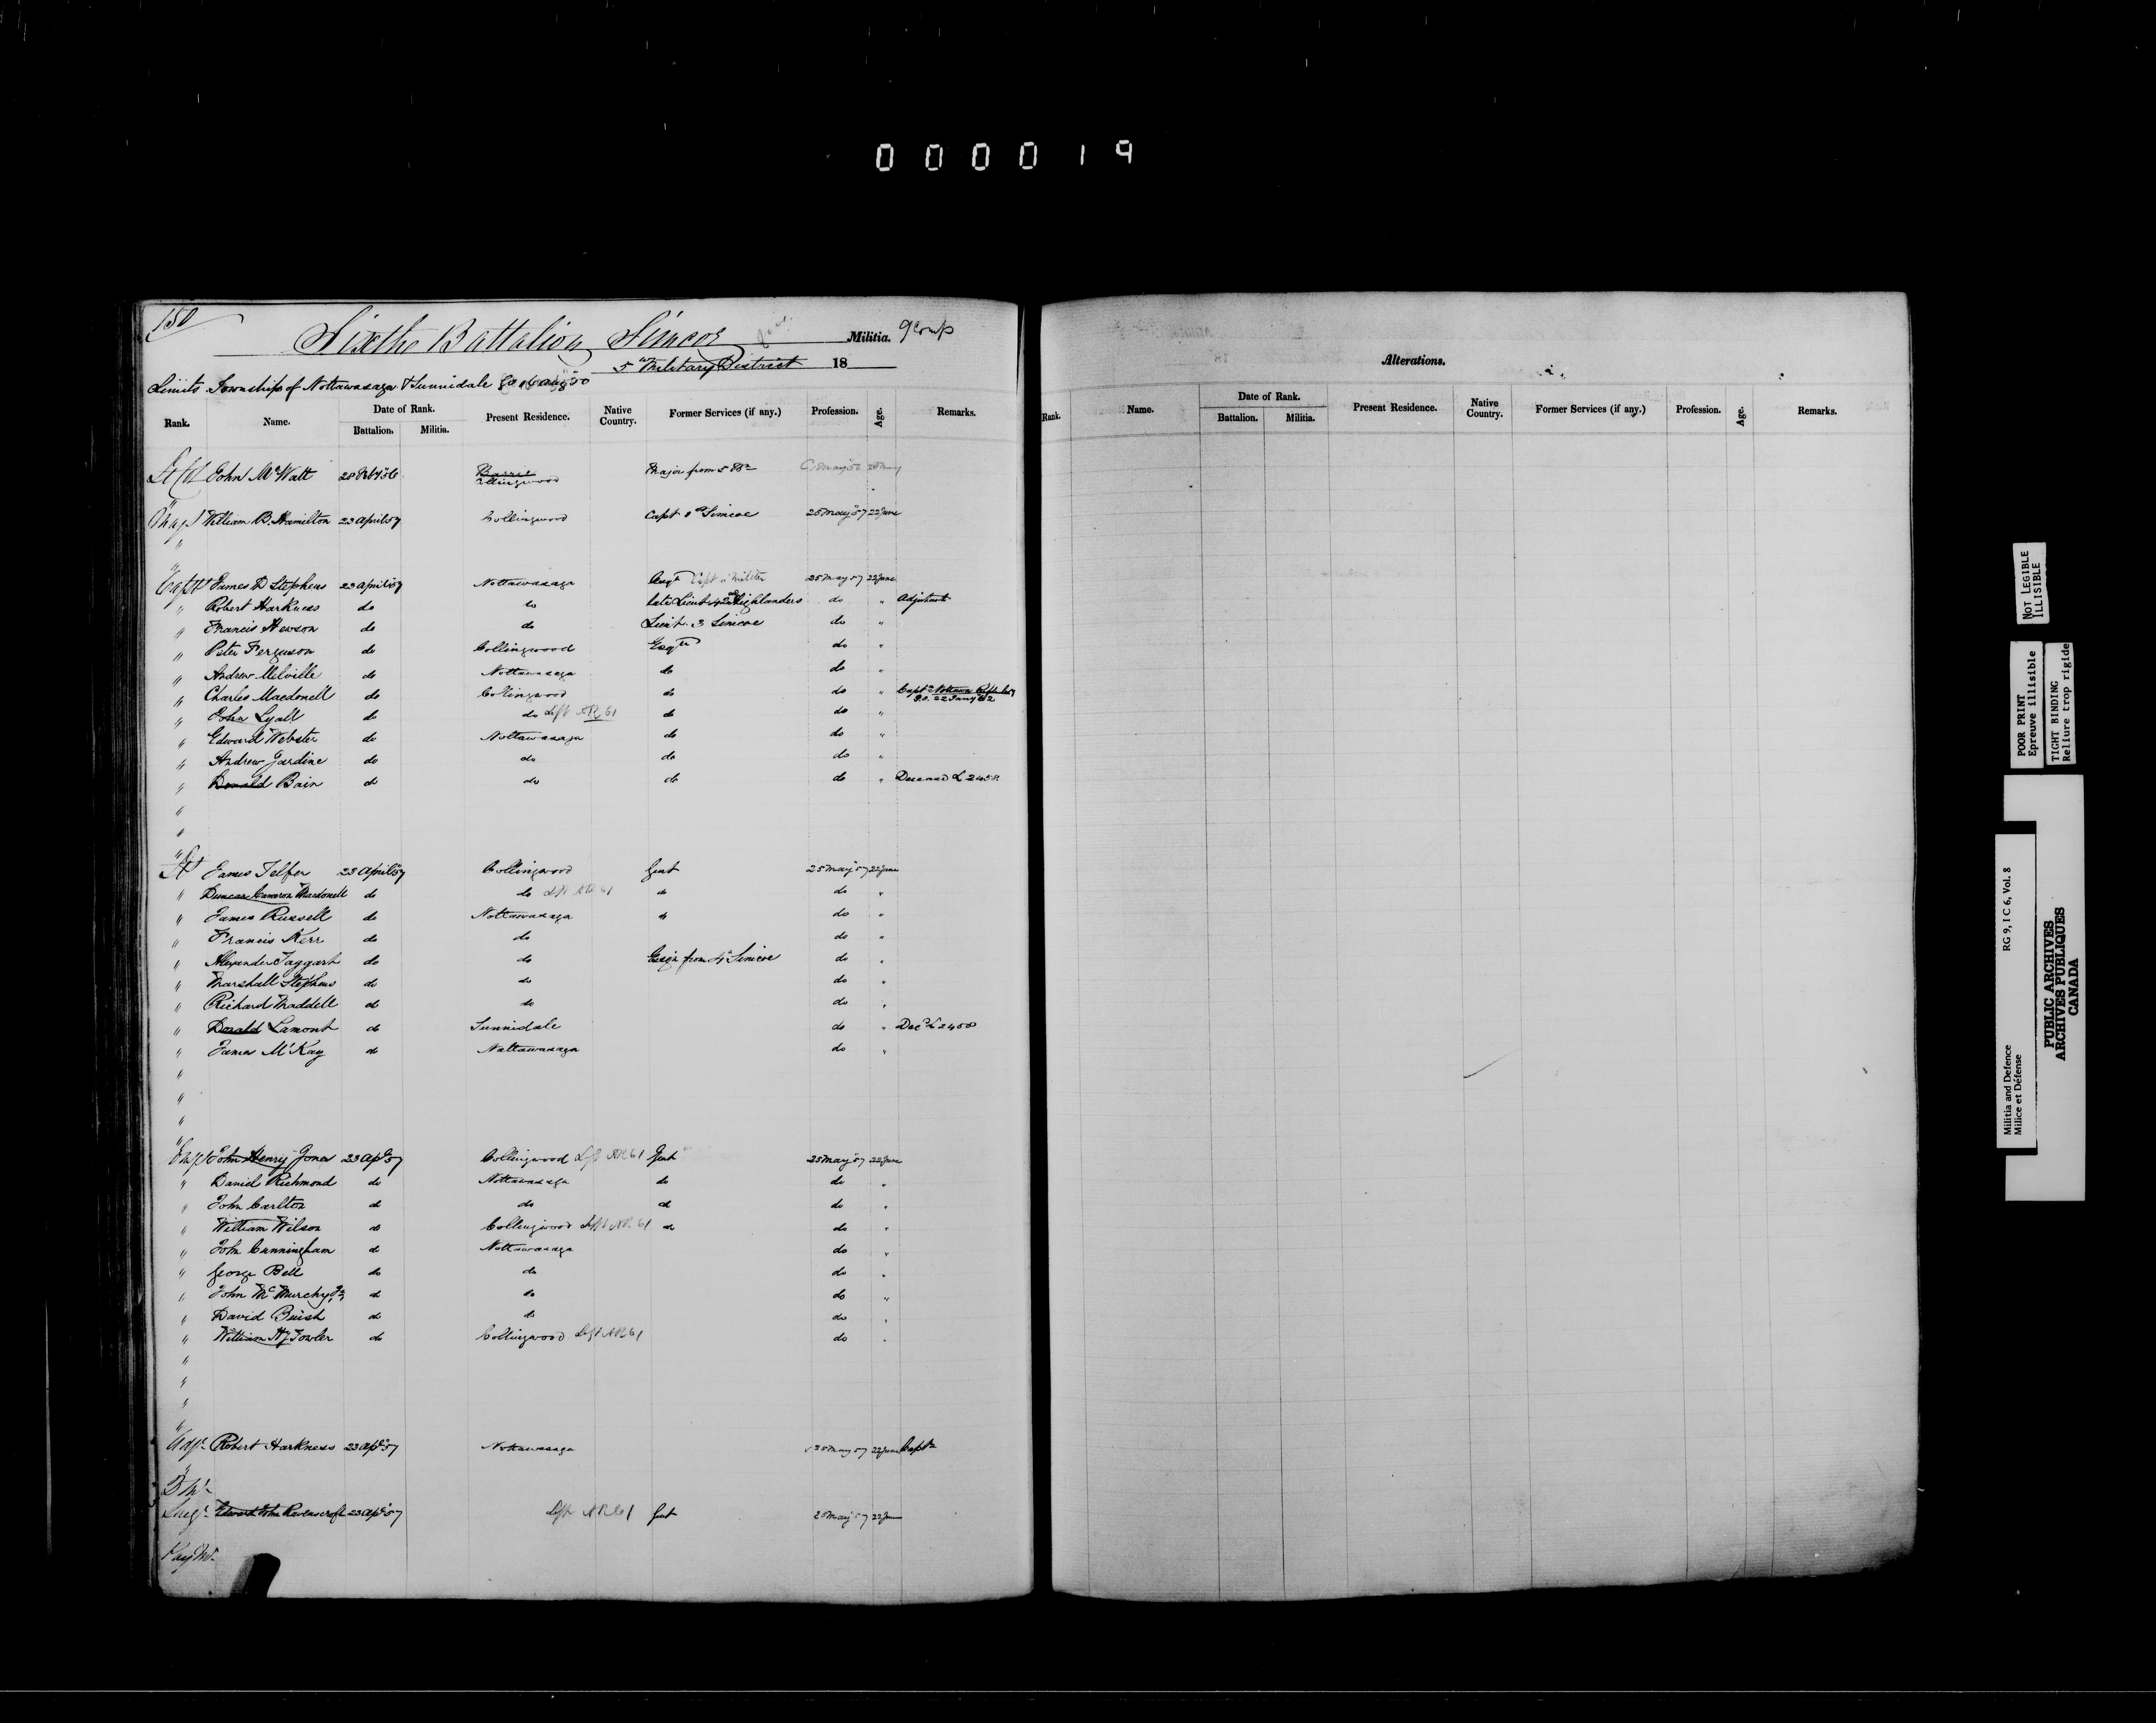 000019
150
Sixth Battalion Simcoe Militia. 9 Comp
5th Military District 18
Limits Townships of Nottawasaga & Sunnidale
Rank. Name. Date of Rank. Battalion. Militia. Present Residence. Native Country. Former Services (if any.) Profession. Age. Remarks.
Lt Col John McWatt 28 Feby 56 Barrie Collingwood Major from 5 Bn
Maj William B. Hamilton 23 April 57 Collingwood Capt Simcoe 25 May 57 22 June
"
"
Capt James D Stephens 23 April 57 Nottawasaga 25 May 57 22 June
" Robert Harkness do do late Lieut 42nd Highlanders do " Adjutant
" Francis Hewson do do Lieut. 3 Simcoe do "
" Peter Ferguson do Collingwood Esqre do "
" Andrew Melville do Nottawasaga do do "
" Charles Macdonell do Collingwood do do " Capt G.O. 22 Jany 62
" John Lyall do do Left AR 61 do do "
" Edward Webster do Nottawasaga do do "
" Andrew Jardine do do do do "
" Donald Bain do do do do " Deceased L 2458
"
"
"
Lt James Telfer 23 April 57 Collingwood Gent 25 May 57 22 June
" Duncan Cameron Macdonell do do Left AR 61 do do "
" James Russell do Nottawasaga do do "
" Francis Kerr do do do "
" Alexander Taggart do do Ensign from 4 Simcoe do "
" Marshall Stephens do do do "
" Richard Maddell do do do "
" Donald Lamont do Sunnidale do " Decd L 2458
" James McKay do Nottawasaga do "
"
"
"
"
Ensn John Henry Jones 23 Apl 57 Collingwood Left AR 61 Gent 25 May 57 22 June
" Daniel Richmond do Nottawasaga do do "
" John Carlton do do do do "
" William Wilson do Collingwood Left AR 61 do do "
" John Cunningham do Nottawasaga do "
" George Bell do do do "
" John McMurchy Jr do do do "
" David Buist do do do "
" William Hy Fowler do Collingwood Left AR 61 do "
"
"
"
"
Adjt Robert Harkness 23 Apl 57 Nottawasaga 25 May 57 22 June Capt
"
Surgn Edward John Ravenscroft 23 Apl 57 Left AR 61 Gent 25 May 57 22 June
Pay Mr
Alterations.
18
Rank. Name. Date of Rank. Battalion. Militia. Present Residence. Native Country. Former Services (if any.) Profession. Age. Remarks.
NOT LEGIBLE
ILLISIBLE
POOR PRINT
Epreuve illisible
TIGHT BINDING
Reliure trop rigide
Militia and Defence RG 9, I C 6, Vol. 8
Milice et Défense
PUBLIC ARCHIVES
ARCHIVES PUBLIQUES
CANADA